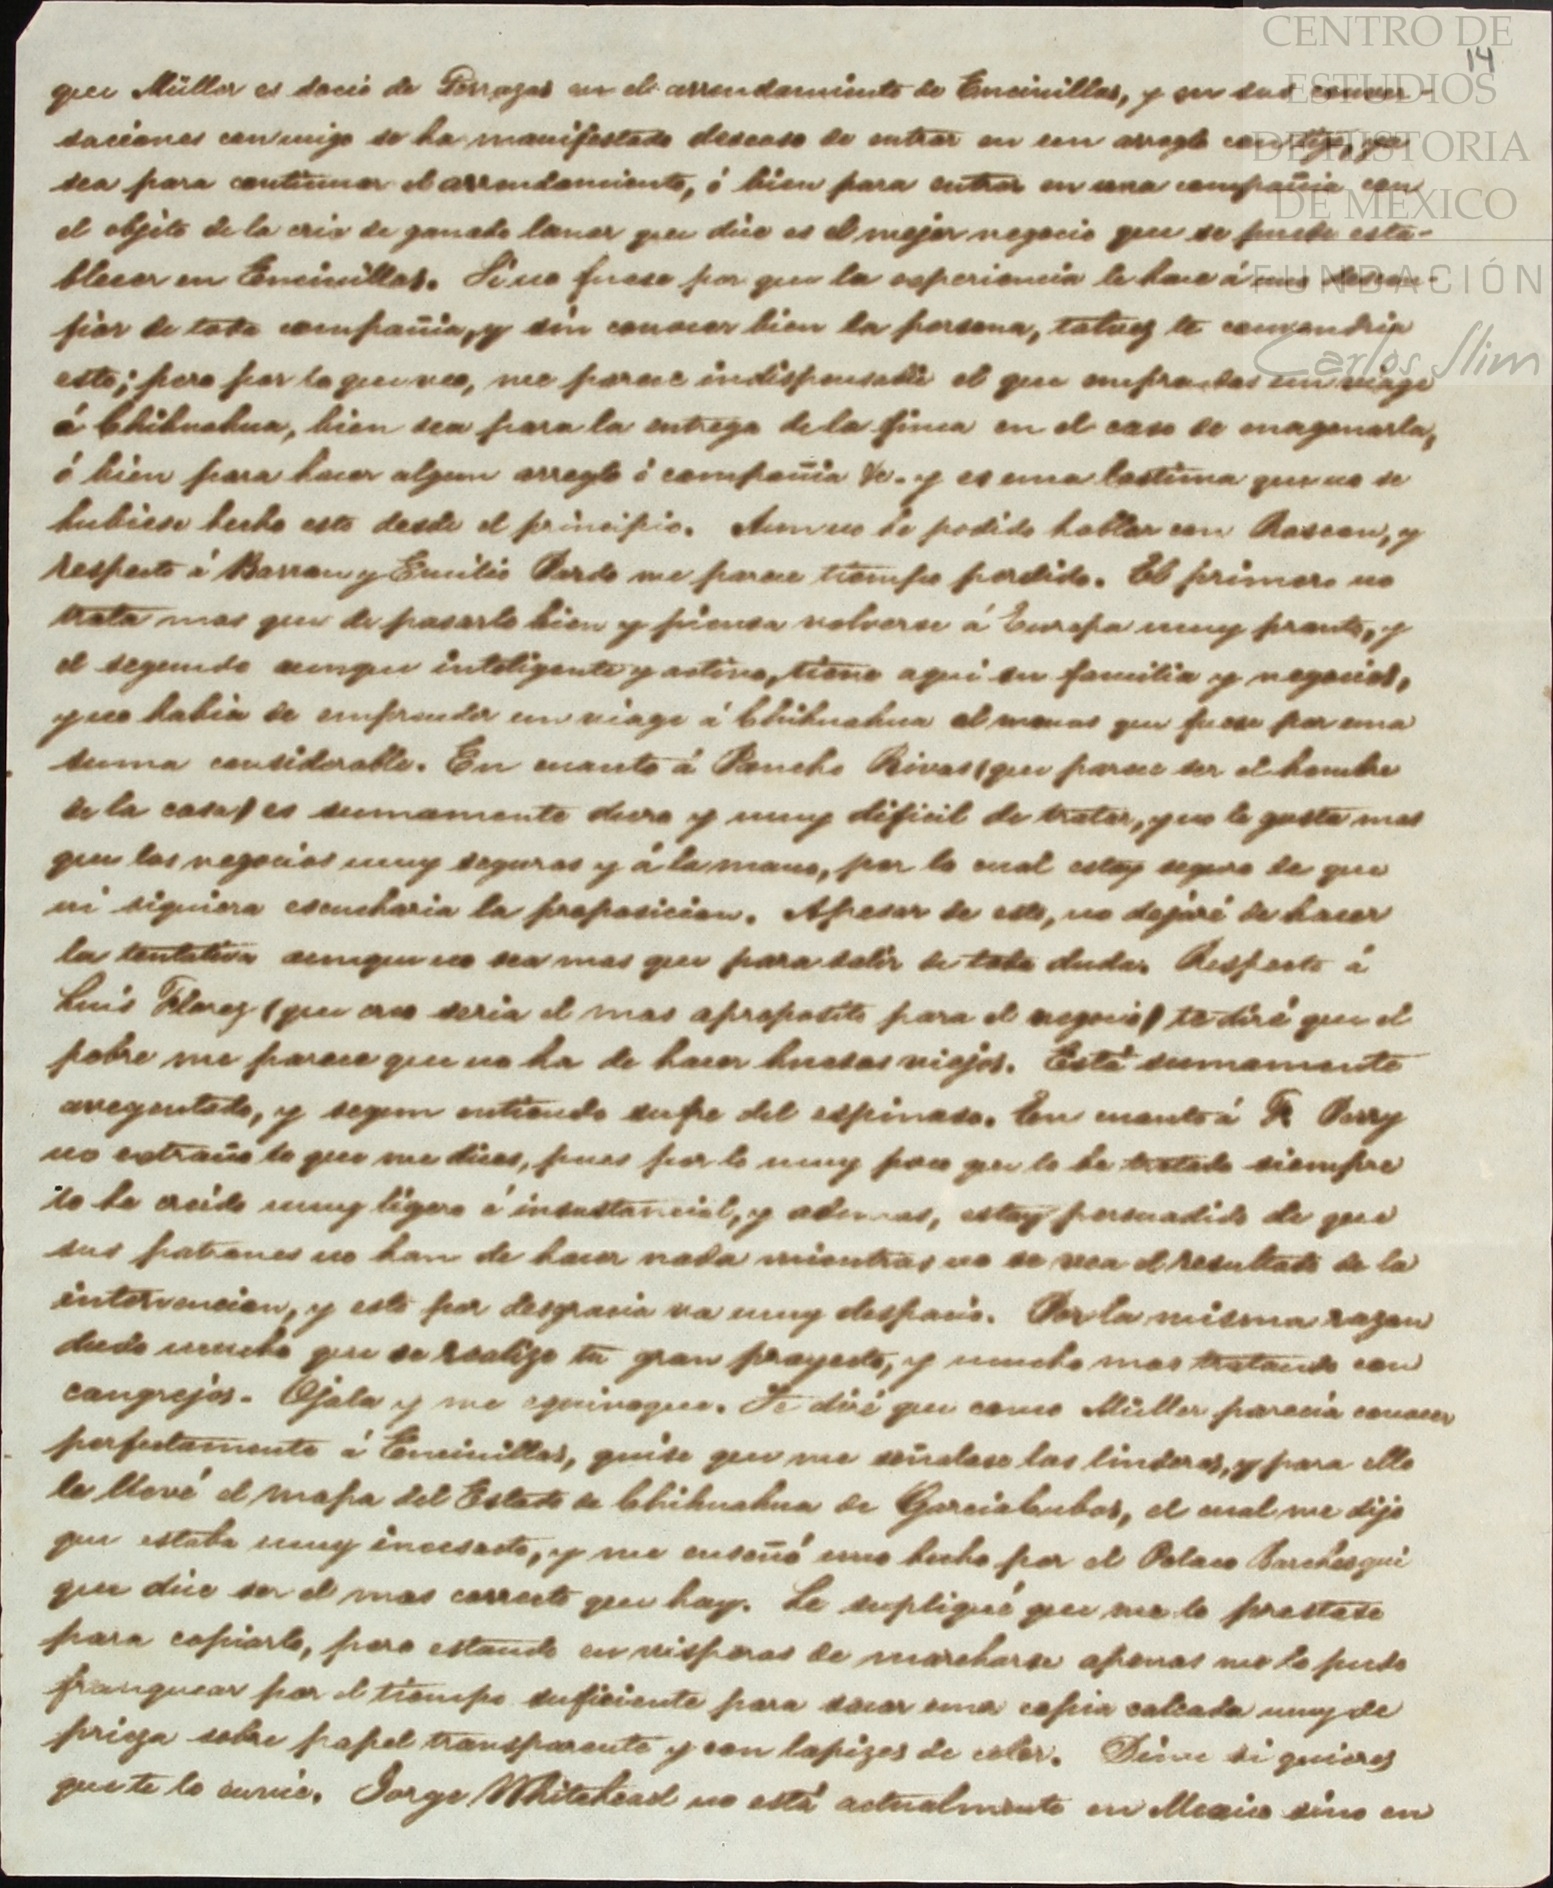 CENTRO DE
ESTUDIOS
DE HISTORIA
DE MEXICO
FUNDACIÓN
Carlos Slim
14
que Müller es socio de Terrazas en el arrendamiento de Encinillas, y en sus conver-
saciones conmigo se ha manifestado deseoso de entrar en un arreglo contigo, ya
sea para continuar el arrendamiento, ó bien para entrar en una compañia con
el objeto de la cria de ganado lanar que dice es el mejor negocio que se puede esta-
blecer en Encinillas. Si no fuese por que la experiencia le hace á uno descon-
fiar de toda compañia, y sin conocer bien la persona, talvez te convendria
esto; pero por lo que veo, me parece indispensable el que emprendas un viage
á Chihuahua, bien sea para la entrega de la finca en el caso de enagenarla,
ó bien para hacer algun arreglo ó compañia &c. y es una lastima que no se
hubiese hecho esto desde el principio. Aun no he podido hablar con Rascon, y
respecto á Barron y Emilio Pardo me parece tiempo perdido. El primero no
trata mas que de pasarlo bien y piensa volverse á Europa muy pronto, y
el segundo aunque inteligente y activo, tiene aqui su familia y negocios,
y no habia de emprender un viage á Chihuahua al menos que fuese por una
suma considerable. En cuanto á Pancho Rivas (que parece ser el hombre
de la casa) es sumamente duro y muy dificil de tratar, y no le gusta mas
que los negocios muy seguros y á la mano, por lo cual estoy seguro de que
ni siquiera escucharia la proposicion. Apesar de esto, no dejaré de hacer
la tentativa aunque no sea mas que para salir de toda duda. Respecto á
Luis Florez (que creo seria el mas aproposito para el negocio) te diré que el
pobre me parece que no ha de hacer huesos viejos. Está sumamente
avegentado, y segun entiendo sufre del espinaso. En cuanto á Perry
no extraño lo que me dices, pues por lo muy poco que lo he tratado siempre
lo he creido muy ligero é insustancial, y ademas, estoy persuadido de que
sus patrones no han de hacer nada mientras no se vea el resultado de la
intervencion, y esto por desgracia va muy despacio. Por la misma razon
dudo mucho que se realize tu gran proyecto, y mucho mas tratando con
cangrejos. Ojala y me equivoque. Te diré que como Müller parecia conocer
perfectamente á Encinillas, quise que me señalase los linderos, y para ello
le llevé el mapa del Estado de Chihuahua de Garcia Cubas, el cual me dijo
que estaba muy inexsacto, y me enseñó uno hecho por el Polaco Barchesqui
que dice ser el mas correcto que hay. Le supliqué que me lo prestase
para copiarlo, pero estando en visperas de marcharse apenas me lo pudo
franquear por el tiempo suficiente para sacar una copia calcada muy de
priza sobre papel transparente y con lapizes de color. Dime si quieres
que te lo envie. Jorge Whitehead no está actualmente en Mexico sino en